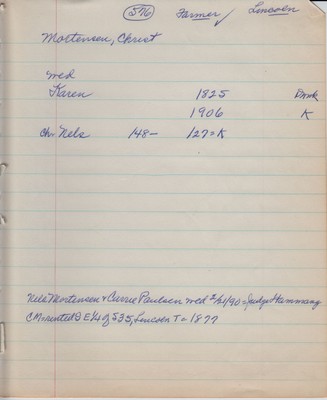 576 Farmer ✓ Lincoln
Mortensen, Christ
med
Karen 1825 Dmk
1906 K
ch. Nels 148- 127=K
Nels Mortensen & Carrie Paulsen med 2/21/90=Judge Hammang
CM=rented E1/4 of S35, Lincoln T= 1877